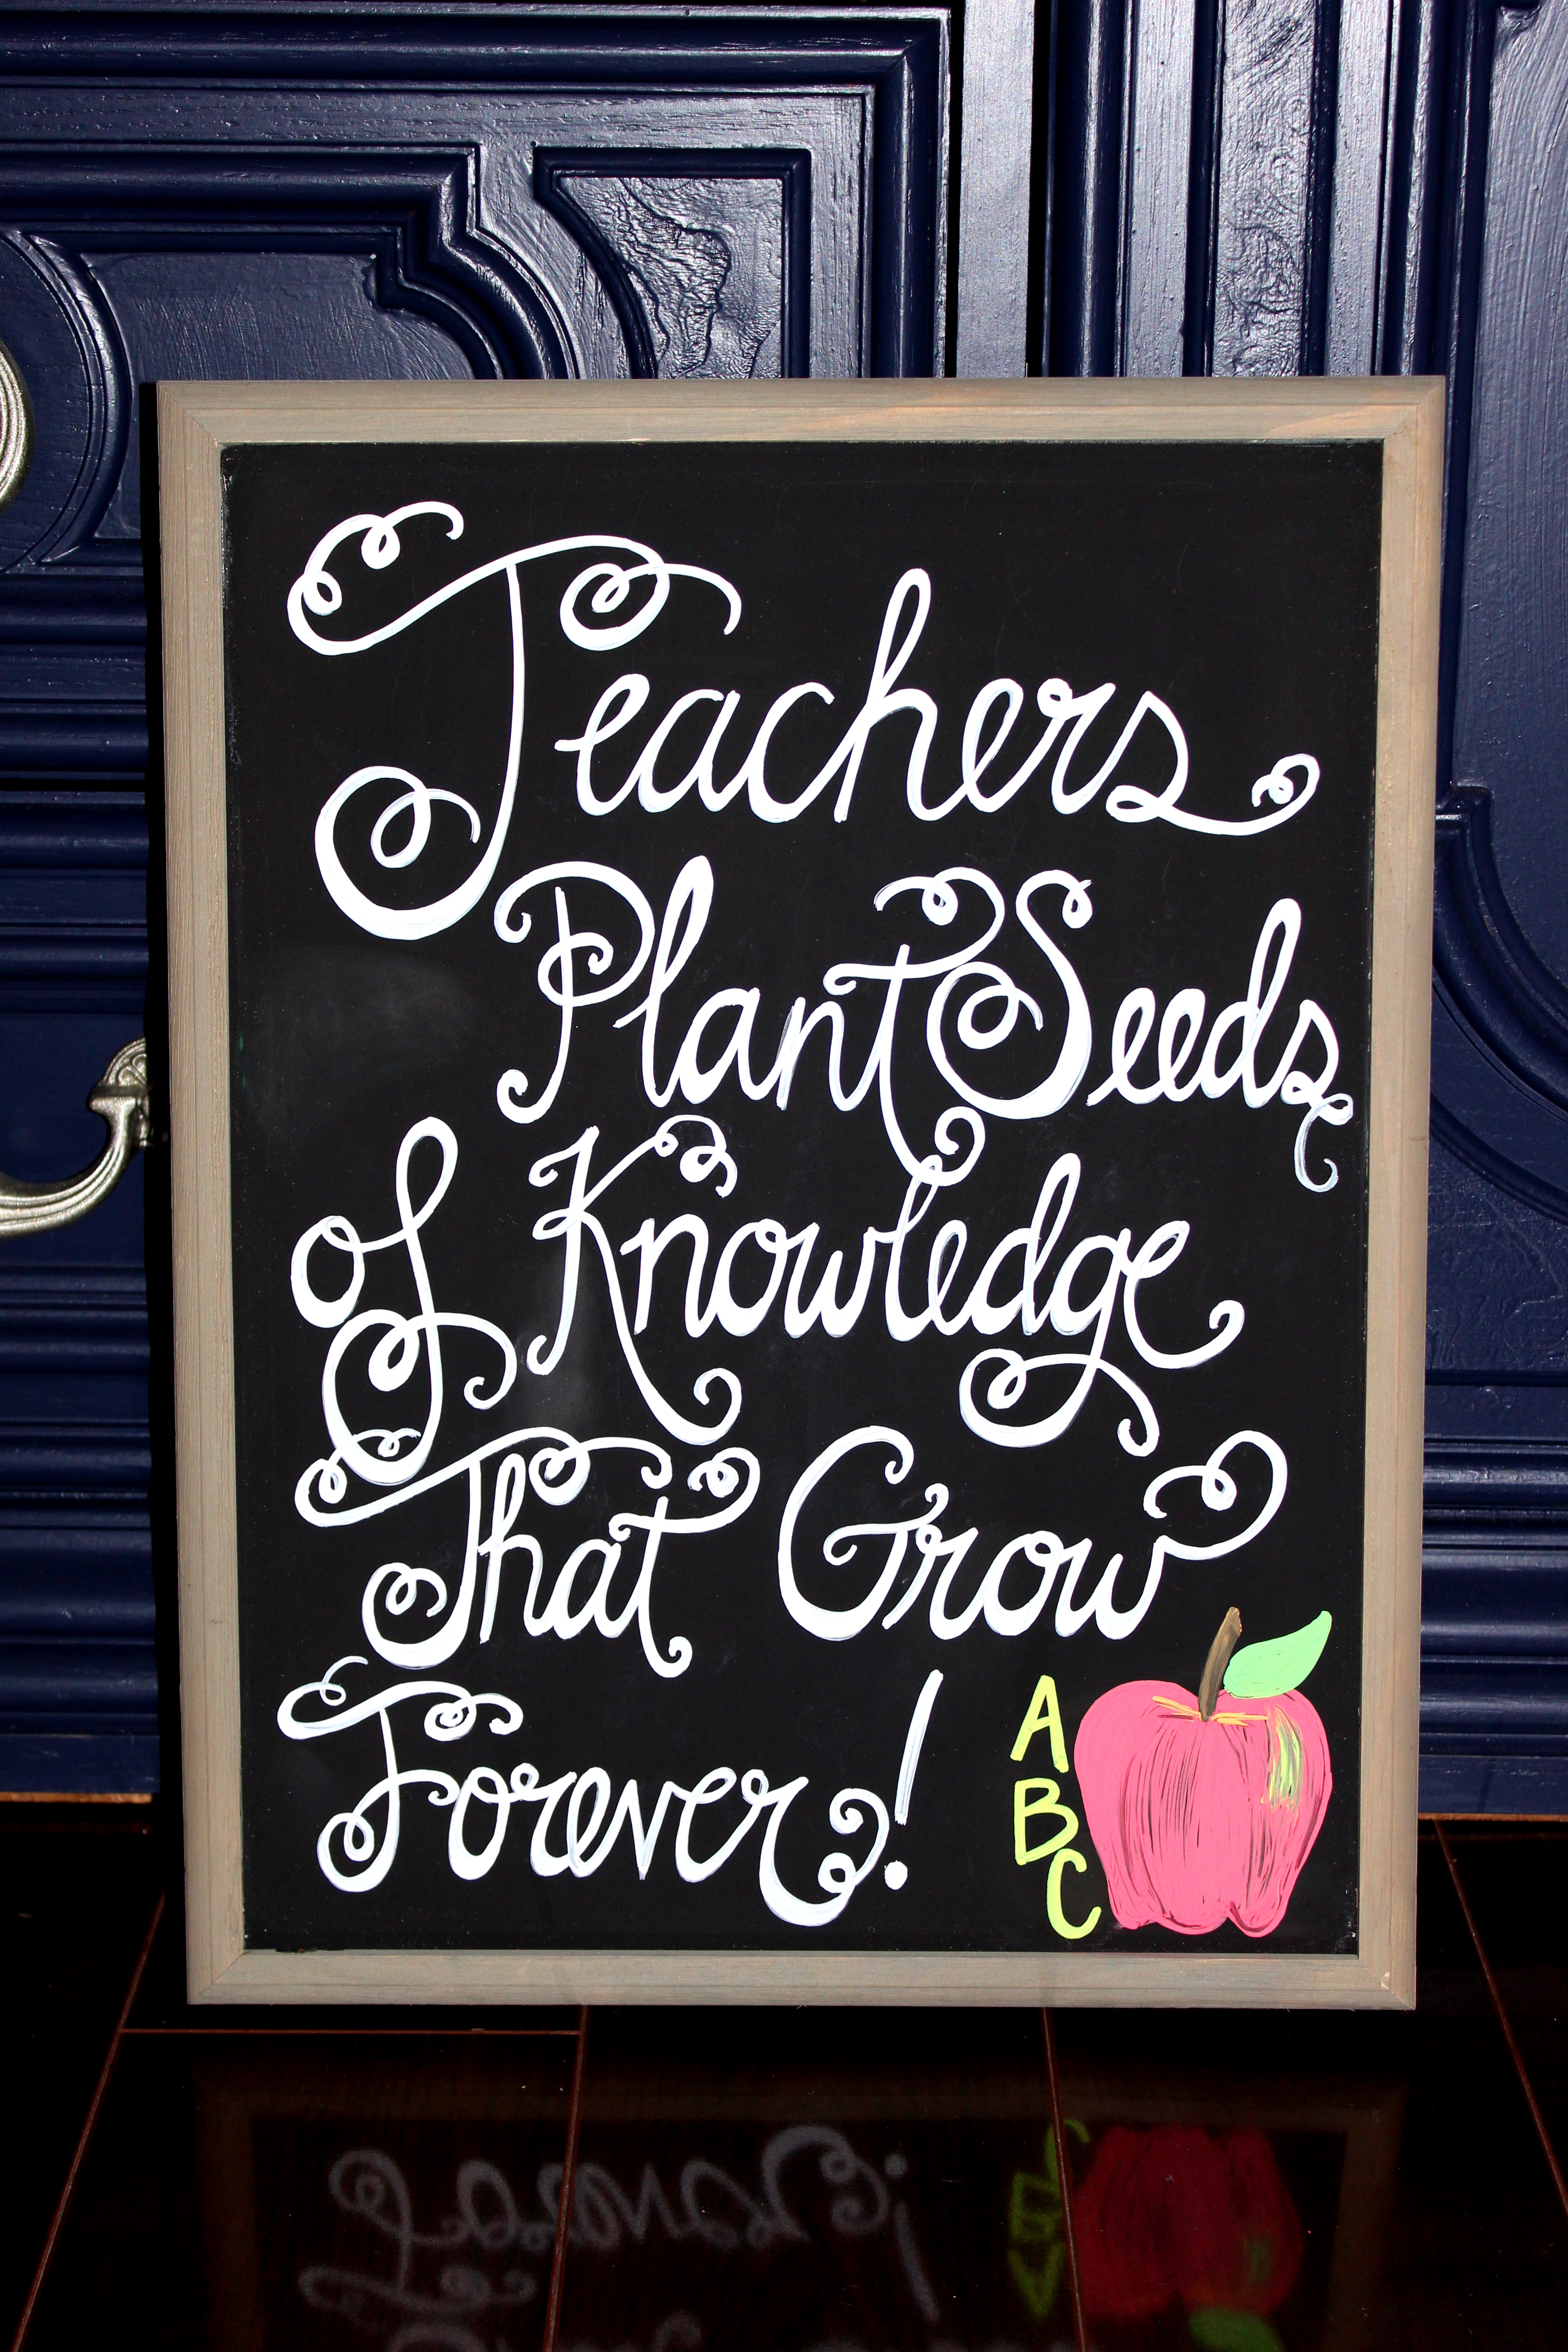 Teachers
Plant Seeds
of Knowledge
That Grow
Forever!
A
B
C